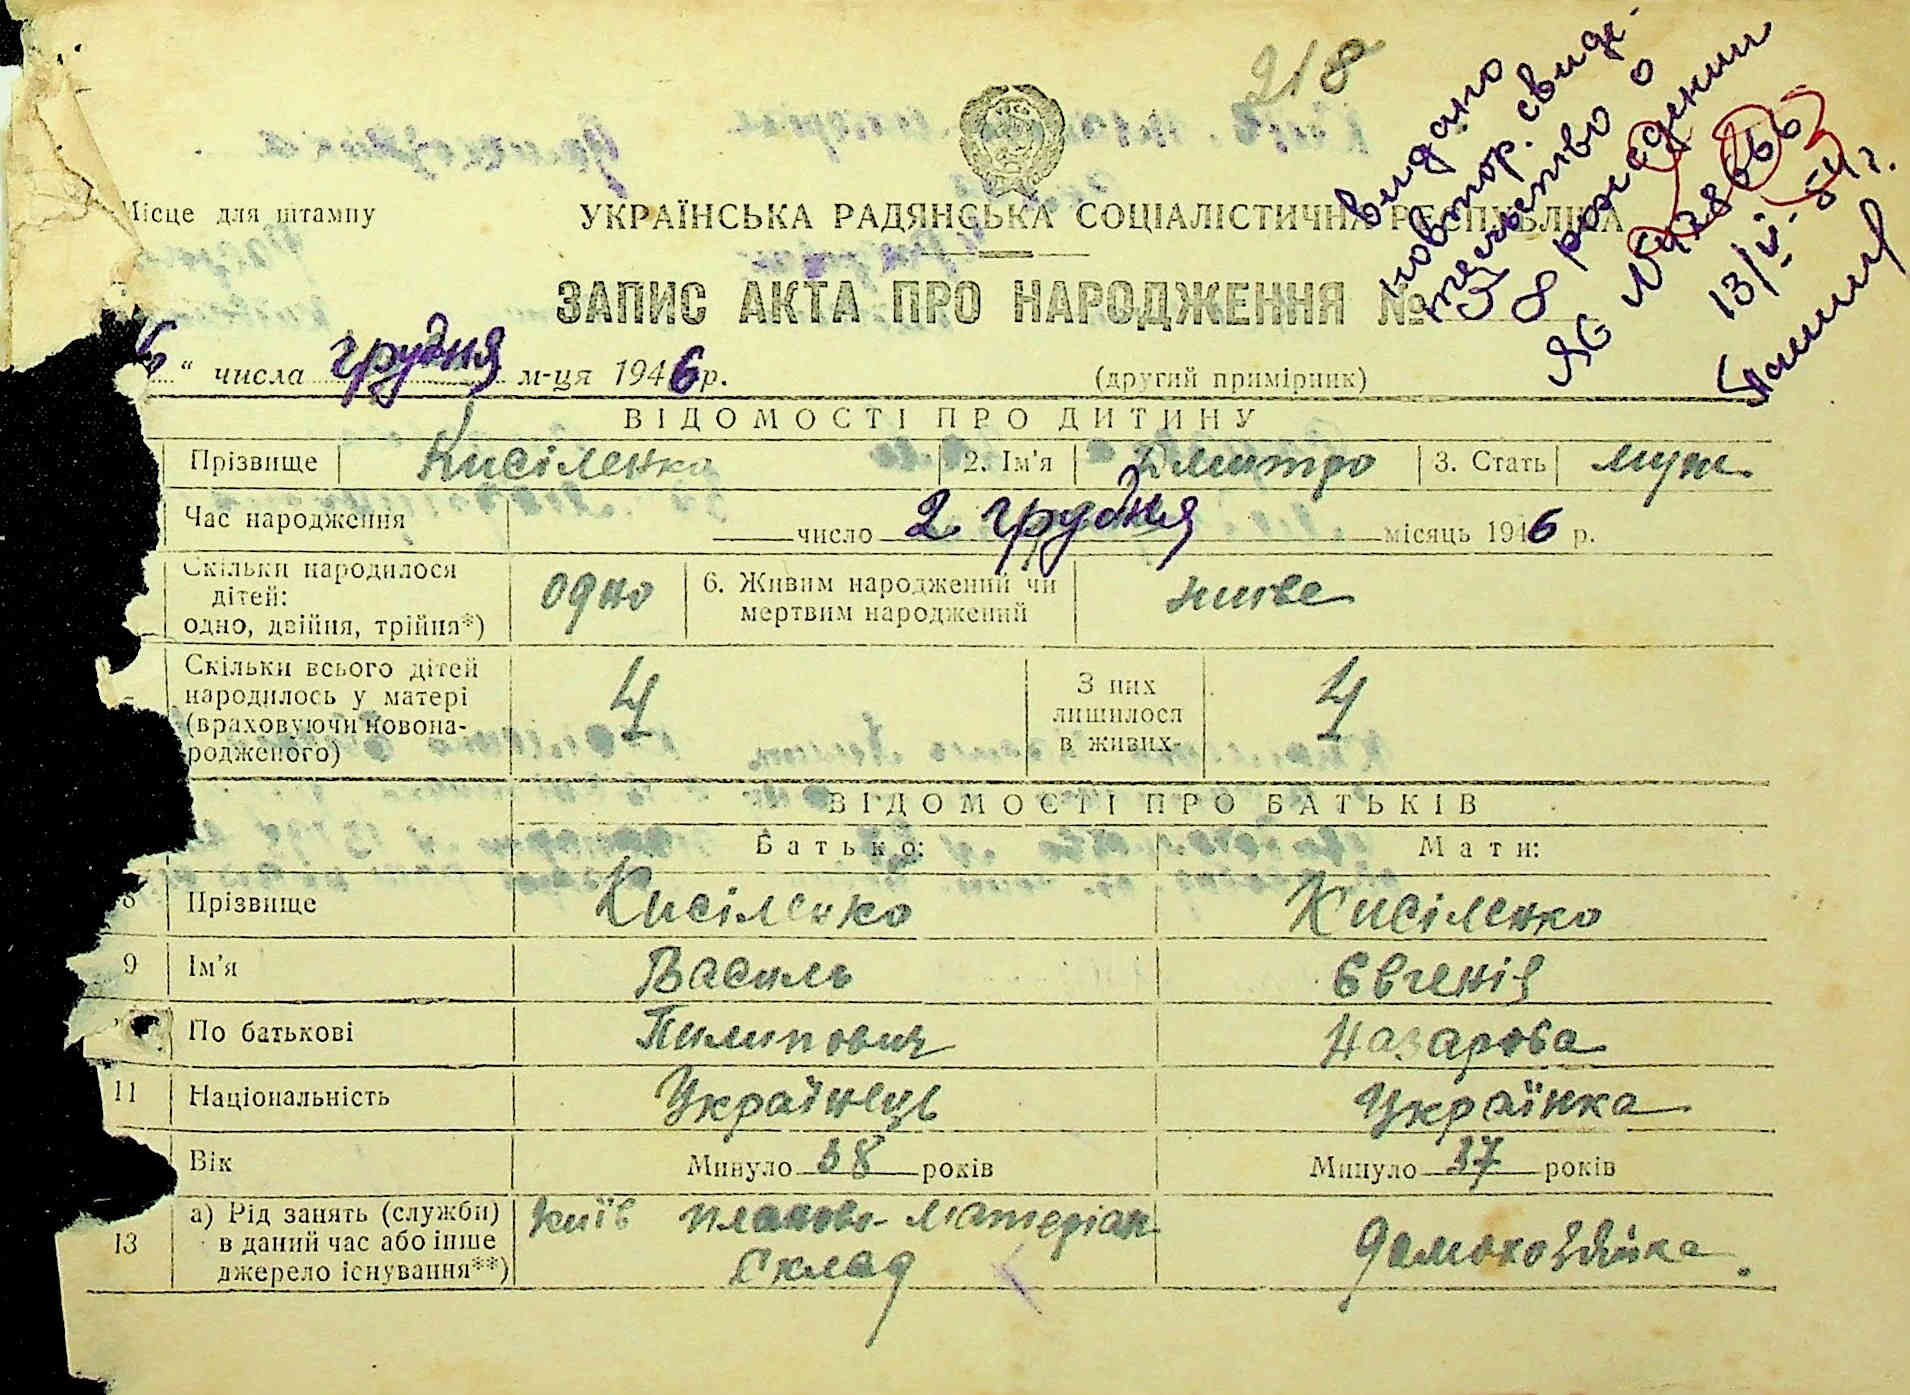 218
видано
повтор. свиде-
тельство о
рождении
ЯБ №
13/V-54 г.
Місце для штампу
УКРАЇНСЬКА РАДЯНСЬКА СОЦІАЛІСТИЧНА РЕСПУБЛІКА
ЗАПИС АКТА ПРО НАРОДЖЕННЯ №
" числа грудня м-ця 1946 р.
(другий примірник)
ВІДОМОСТІ ПРО ДИТИНУ
Прізвище Кисіленко 2. Ім'я Дмитро 3. Стать муж.
Час народження число 2 грудня місяць 1946 р.
Скільки народилося
дітей:
одно, двійня, трійня*)
одно
6. Живим народжений чи
мертвим народжений
живе
Скільки всього дітей
народилось у матері
(враховуючи новона-
родженого)
4
З них
лишилося
в живих
4
ВІДОМОСТІ ПРО БАТЬКІВ
Батько: Мати:
8 Прізвище Кисіленко Кисіленко
9 Ім'я Василь Євгенія
По батькові Пилипович Назарова
11 Національність Українець Українка
Вік Минуло 38 років Минуло 37 років
13
а) Рід занять (служби)
в даний час або інше
джерело існування**)
Київ планово-матеріал
склад
домохозяйка.